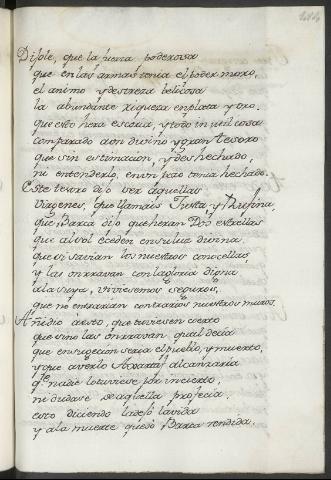 Dijole, que la fuerza poderosa
que en las armas tenia el poder moro,
el animo y destreza belicosa
la abundante riqueza en plata y oro.
que esto hera escoria, y todo inutil cosa
comparado a don divino y gran tesoro
que sin estimacion, y deshechado,
ni entenderlo, en un pozo tenia hechado.
Este tesoro dijo ser aquellas
Virgenes, que llamais Justa y Rufina,
que Barca dijo que heran Dos estrellas
que al sol eceden en su luz divina.
que si savian los nuestros conocellas,
y las onrravan con la gloria digna
a la suya, viviesemos seguros,
que no entrarian contrarios nuestros muros.
Añidio a esto, que tuviesen cierto
que si no las onrravan qual decia
que en sugecion seria el pueblo, y muerto,
y que averlo Axarraf alcanzaria
qe. nadie lo tuviese por incierto,
ni dudase de aquella profecia.
esto diciendo la dejo la vida
y a la muerte quedo Barca rendida.